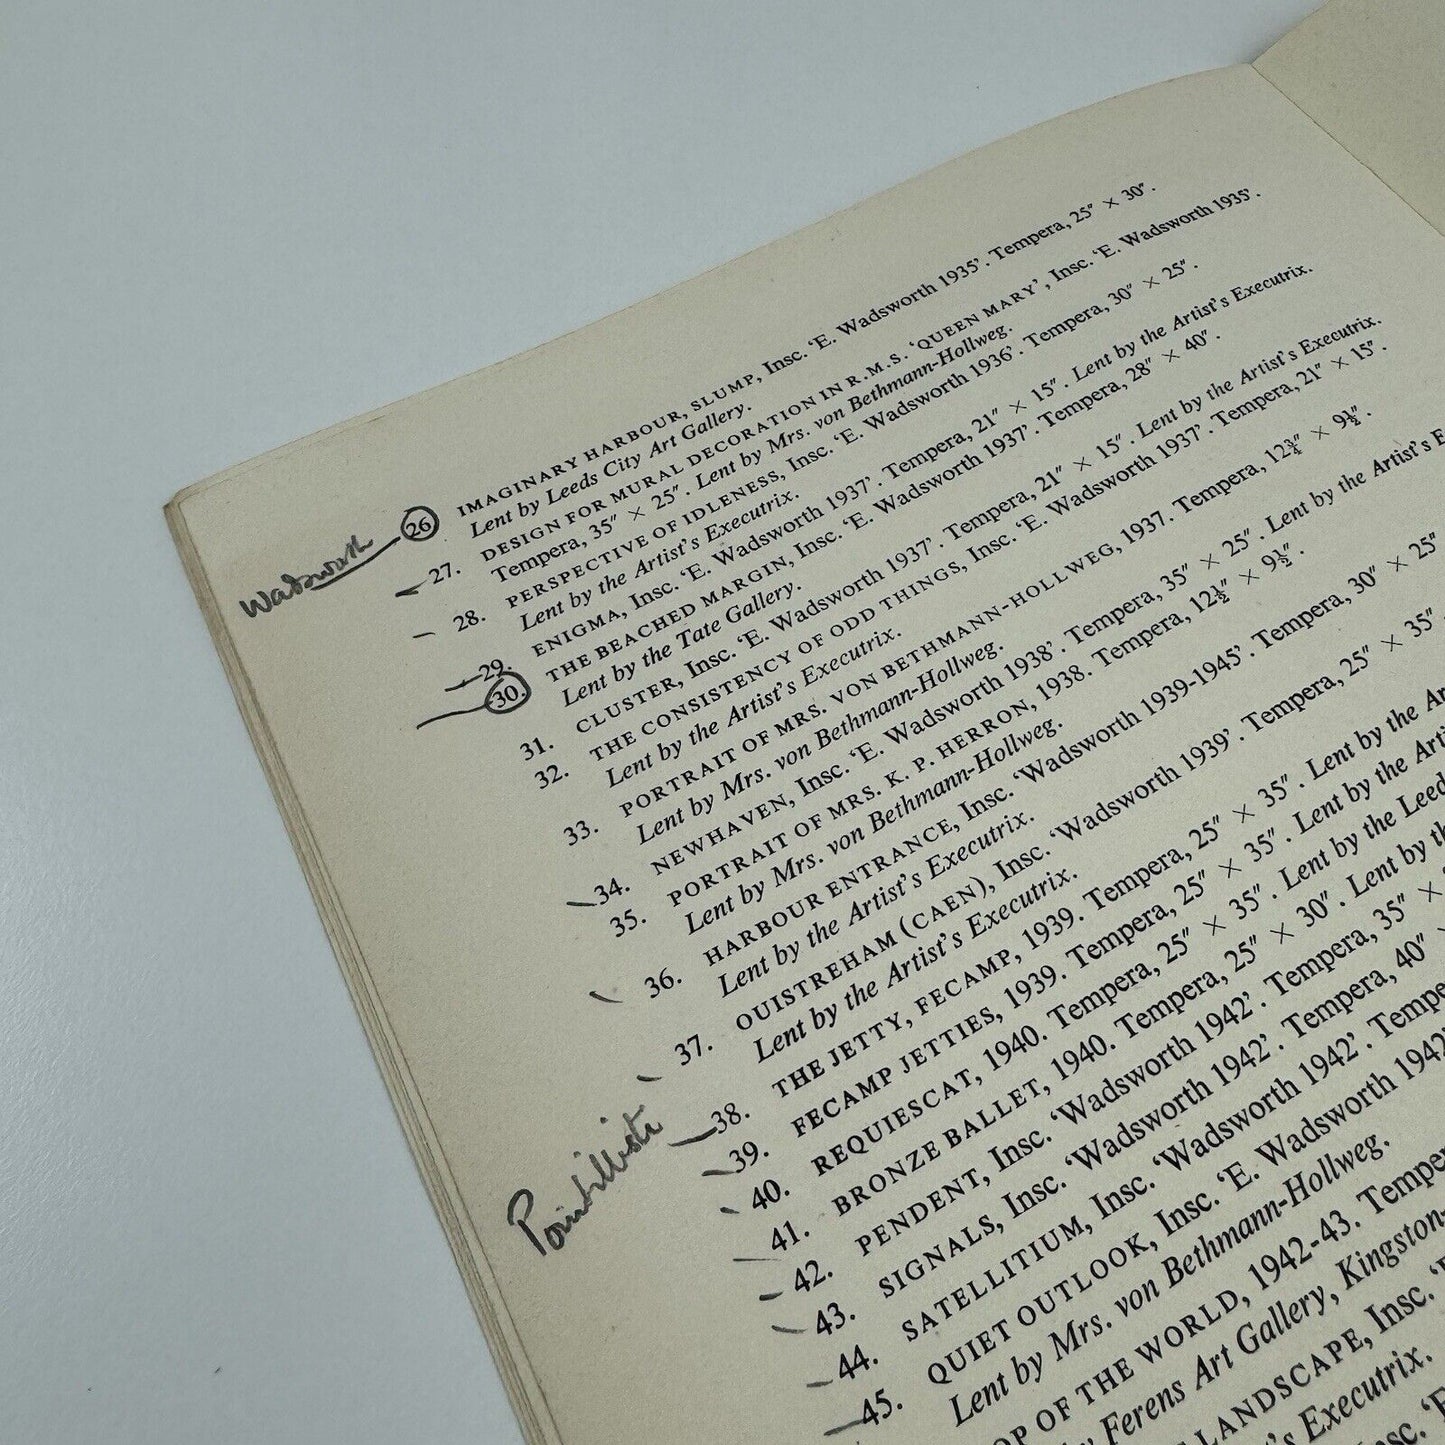 Wadsworth
26 IMAGINARY HARBOUR, SLUMP, Insc. ‘E. Wadsworth 1935’. Tempera, 25″ × 30″.
Lent by Leeds City Art Gallery.
27. DESIGN FOR MURAL DECORATION IN R.M.S. ‘QUEEN MARY’, Insc. ‘E. Wadsworth 1935’.
Tempera, 35″ × 25″. Lent by Mrs. von Bethmann-Hollweg.
28. PERSPECTIVE OF IDLENESS, Insc. ‘E. Wadsworth 1936’. Tempera, 30″ × 25″.
Lent by the Artist’s Executrix.
29. ENIGMA, Insc. ‘E. Wadsworth 1937’. Tempera, 21″ × 15″. Lent by the Artist’s Executrix.
30. THE BEACHED MARGIN, Insc. ‘E. Wadsworth 1937’. Tempera, 28″ × 40″.
Lent by the Tate Gallery.
31. CLUSTER, Insc. ‘E. Wadsworth 1937’. Tempera, 21″ × 15″. Lent by the Artist’s Executrix.
32. THE CONSISTENCY OF ODD THINGS, Insc. ‘E. Wadsworth 1937’. Tempera, 21″ × 15″.
Lent by the Artist’s Executrix.
33. PORTRAIT OF MRS. VON BETHMANN-HOLLWEG, 1937. Tempera, 12¾″ × 9½″.
Lent by Mrs. von Bethmann-Hollweg.
34. NEWHAVEN, Insc. ‘E. Wadsworth 1938’. Tempera, 35″ × 25″. Lent by the Artist’s E
35. PORTRAIT OF MRS. K. P. HERRON, 1938. Tempera, 12½″ × 9½″.
Lent by Mrs. von Bethmann-Hollweg.
36. HARBOUR ENTRANCE, Insc. ‘Wadsworth 1939-1945’. Tempera, 30″ × 25″
Lent by the Artist’s Executrix.
37. OUISTREHAM (CAEN), Insc. ‘Wadsworth 1939’. Tempera, 25″ × 35″
Lent by the Artist’s Executrix.
Pointilliste
38. THE JETTY, FECAMP, 1939. Tempera, 25″ × 35″. Lent by the Ar
39. FECAMP JETTIES, 1939. Tempera, 25″ × 35″. Lent by the Arti
40. REQUIESCAT, 1940. Tempera, 25″ × 35″. Lent by the Leed
41. BRONZE BALLET, 1940. Tempera, 25″ × 30″. Lent by th
42. PENDENT, Insc. ‘Wadsworth 1942’. Tempera, 35″ ×
43. SIGNALS, Insc. ‘Wadsworth 1942’. Tempera, 40″
44. SATELLITIUM, Insc. ‘Wadsworth 1942’. Tempe
45. QUIET OUTLOOK, Insc. ‘E. Wadsworth 1942
Lent by Mrs. von Bethmann-Hollweg.
OP OF THE WORLD, 1942-43. Temper
Ferens Art Gallery, Kingston-
LANDSCAPE, Insc.
’s Executrix.